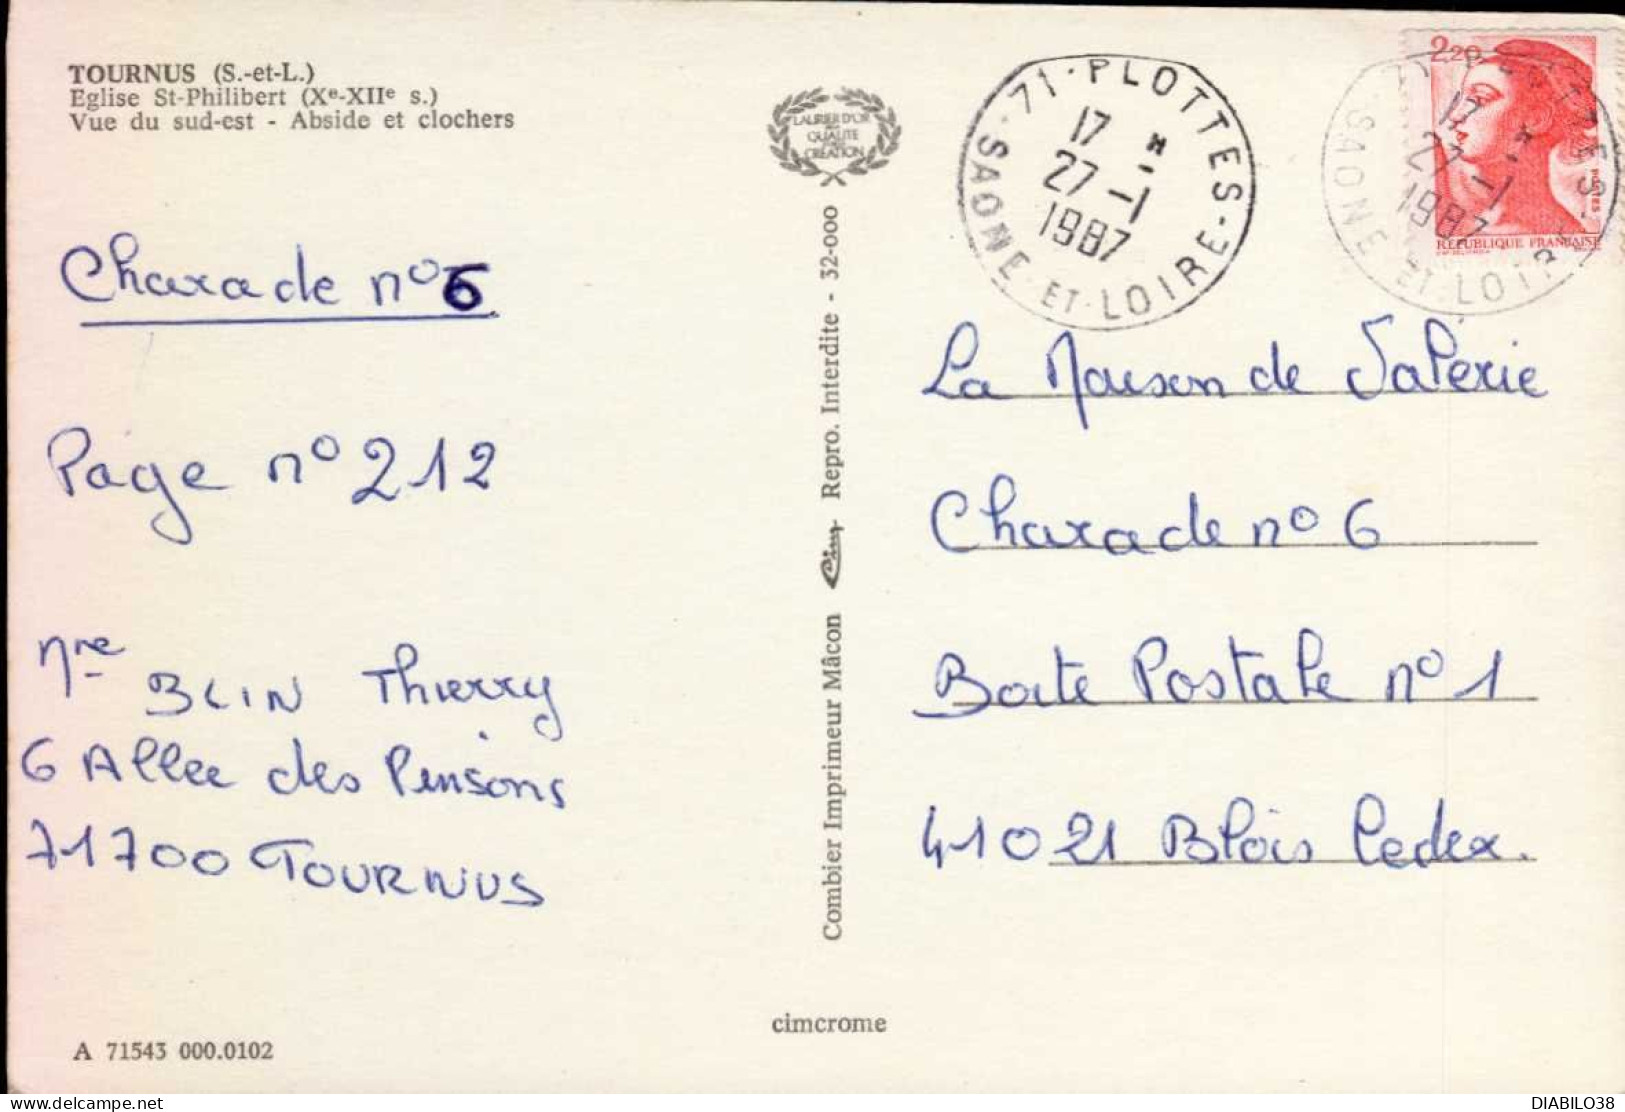 TOURNUS (S.-et-L.)
Eglise St-Philibert (Xe-XIIe s.)
Vue du sud-est - Abside et clochers
LAURIER D'OR
QUALITE
CREATION
71 · PLOTTES · SAONE · ET · LOIRE
17 *
27 -1
1987
2,20
POSTES
REPUBLIQUE FRANÇAISE
71 · PLOTTES · SAONE · ET · LOIRE
17 *
27 -1
1987
Charade n° 6
Page n° 212
BLIN Thierry
6 Allee des Pinsons
71700 TOURNUS
Combier Imprimeur Mâcon Cim Repro. Interdite - 32-000
La Maison de Valérie
Charade n° 6
Boite Postale n° 1
41021 Blois Cedex.
cimcrome
A 71543 000.0102
DIABILO38